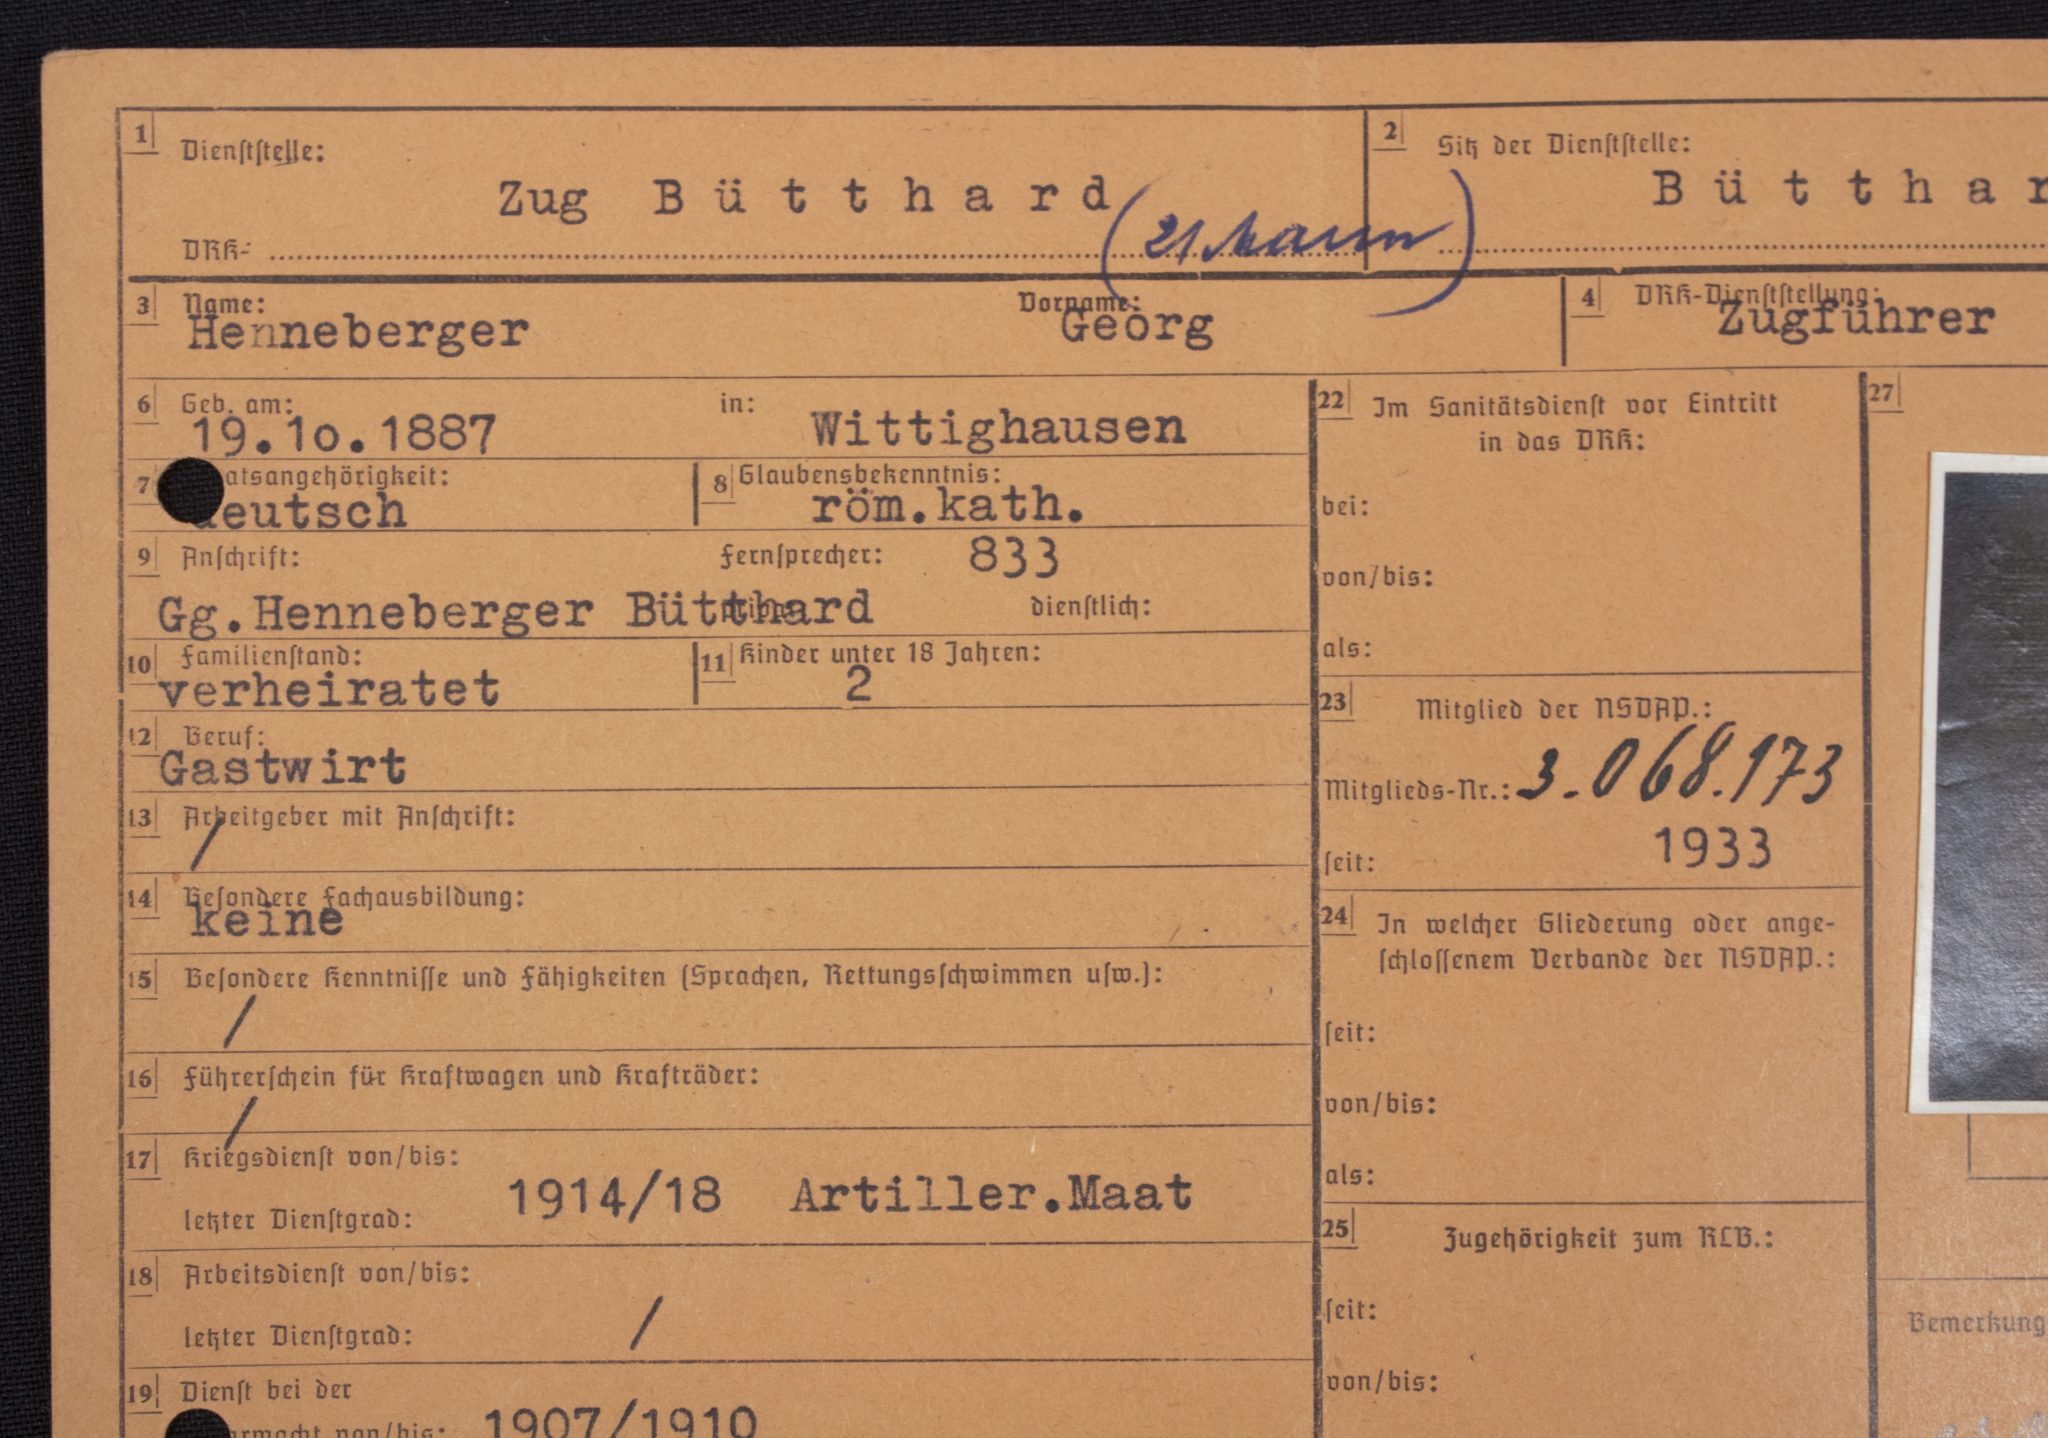 1 Dienststelle:
Zug Bütthard (21 Mann)
DRK-
2 Sitz der Dienststelle:
Bütthar
3 Name: Vorname:
Henneberger Georg
4 DRK-Dienststellung:
Zugführer
6 Geb. am: in:
19.1o.1887 Wittighausen
7 atsangehörigkeit:
deutsch
8 Glaubensbekenntnis:
röm.kath.
9 Anschrift: Fernsprecher: 833
Gg.Henneberger Bütthard dienstlich:
10 Familienstand:
verheiratet
11 Kinder unter 18 Jahren:
2
12 Beruf:
Gastwirt
13 Arbeitgeber mit Anschrift:
/
14 Besondere Fachausbildung:
keine
15 Besondere Kenntnisse und Fähigkeiten (Sprachen, Rettungsschwimmen usw.):
/
16 Führerschein für Kraftwagen und Krafträder:
/
17 Kriegsdienst von/bis:
1914/18 Artiller.Maat
letzter Dienstgrad:
18 Arbeitsdienst von/bis:
/
letzter Dienstgrad:
19 Dienst bei der
rmacht von/bis: 1907/1910
22 Im Sanitätsdienst vor Eintritt
in das DRK:
bei:
von/bis:
als:
23 Mitglied der NSDAP.:
Mitglieds-Nr.: 3.068.173
seit: 1933
24 In welcher Gliederung oder ange-
schlossenem Verbande der NSDAP.:
seit:
von/bis:
als:
25 Zugehörigkeit zum RLB.:
seit:
von/bis:
27
Bemerkung